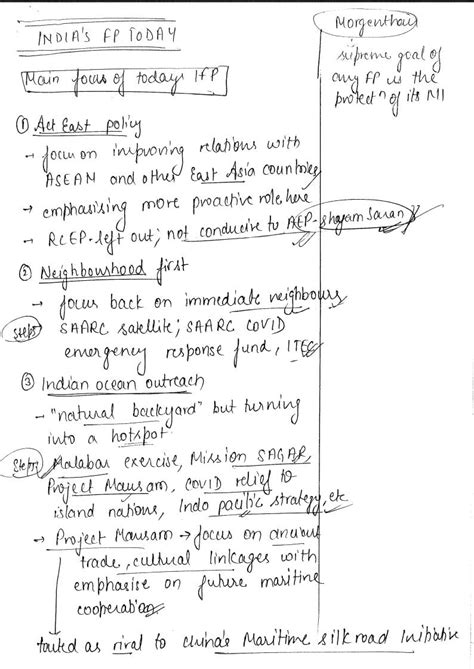 INDIA'S FP TODAY
Main focus of todays IFP
Morgenthau
supreme goal of
any FP is the
protectn of its NI
① Act East policy
→ focus on improving relations with
ASEAN and other East Asia countries
→ emphasising more proactive role here
→ RCEP-left out; not conducive to AEP-Shyam Saran
② Neighbourhood first
→ focus back on immediate neighbours
Steps SAARC satellite; SAARC COVID
emergency response fund, ITEC
③ Indian ocean outreach
- "natural backyard" but turning
into a hotspot
Steps Malabar exercise, Mission SAGAR,
Project Mausam, COVID relief to
island nations, Indo pacific strategy, etc
→ Project Mausam → focus on ancient
trade, cultural linkages with
emphasise on future maritime
cooperation
touted as rival to china's Maritime silk road Initiative